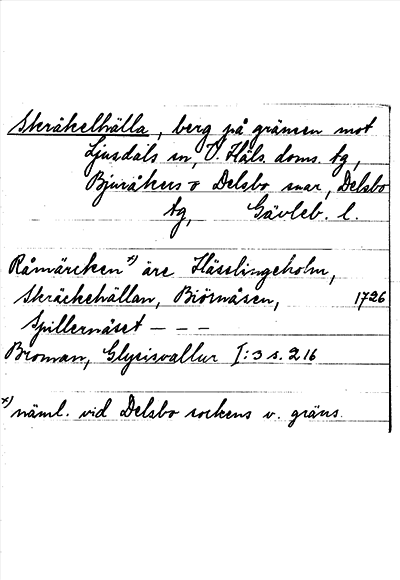 Skråkelhälla, berg på gränsen mot
Ljusdals sn, V. Häls. doms. tg,
Bjuråkers o Delsbo snar, Delsbo
tg, Gävleb. l.
Råmärcken x) äre Hässlingeholm,
Skräckehällan, Biörnåsen, 1726
Spillernåset – – –
Broman, Glysisvallur I:3 s. 216
x) näml. vid Delsbo sockens v. gräns.